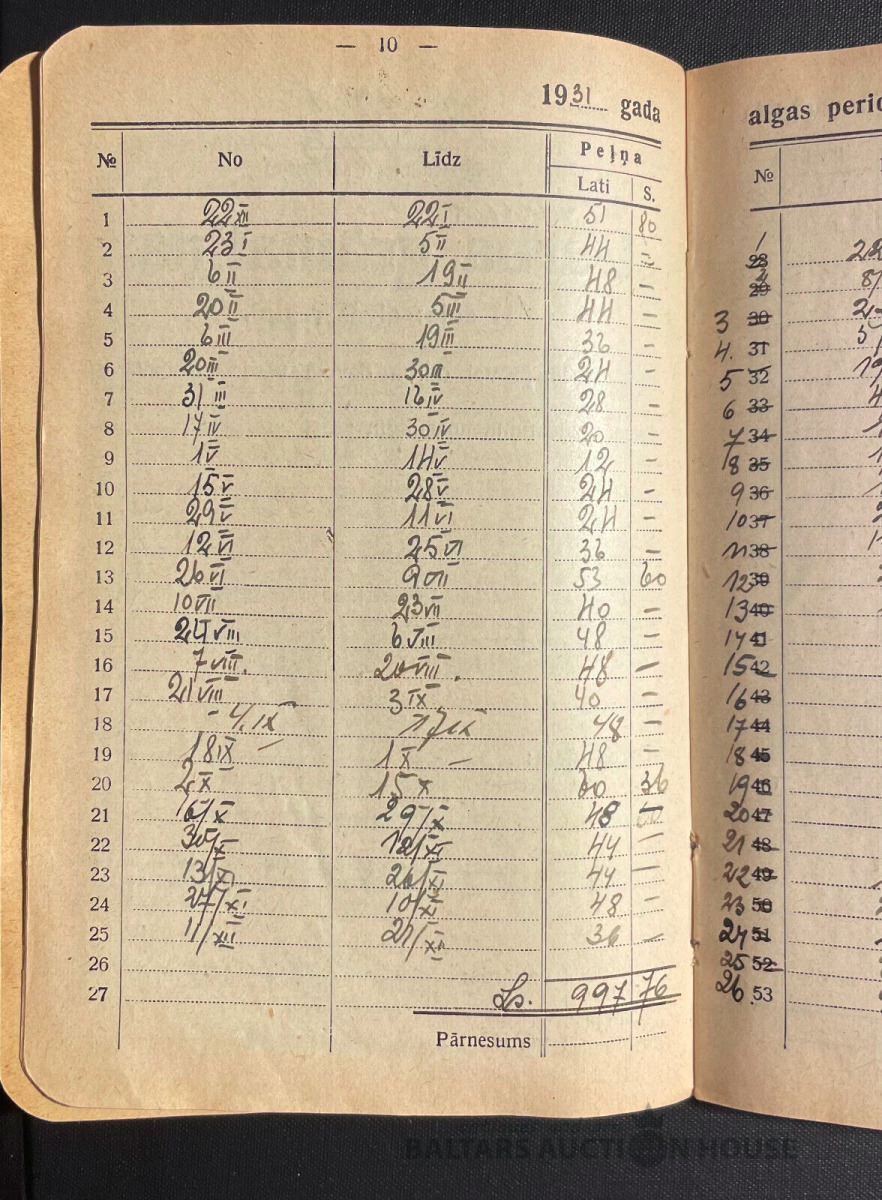 — 10 —
1931 gada
№ No Līdz Peļņa
Lati S.
1 22 XII 22 I 51 80
2 23 I 5 II 44 –
3 6 II 19 II 48 –
4 20 II 5 III 44 –
5 6 III 19 III 36 –
6 20 III 30 III 24 –
7 31 III 16 IV 28 –
8 17 IV 30 IV 20 –
9 1 V 14 V 12 –
10 15 V 28 V 24 –
11 29 V 11 VI 24 –
12 12 VI 25 VI 36 –
13 26 VI 9 VII 53 60
14 10 VII 23 VII 40 –
15 24 VIII 6 VIII 48 –
16 7 VIII. 20 VIII. 48 –
17 21 VIII 3 IX 40 –
18 - 4/IX 17/IX 48 –
19 18 IX – 1 X – 48 –
20 2 X 15 X 60 36
21 16/X 29/X 48 –
22 30/X 12/XI 44 –
23 13/XI 26/XI 44 –
24 27/XI 10/XI 48 –
25 11/XII 21/XII 36 –
26
27 Ls. 997 76
Pārnesums
algas perio
№
1 28
2 29
3 30
4. 31
5 32
6 33
7 34
8 35
9 36
10 37
11 38
12 39
13 40
14 41
15 42
16 43
17 44
18 45
19 46
20 47
21 48
22 49
23 50
24 51
25 52
26. 53
BALTARS AUCTION HOUSE